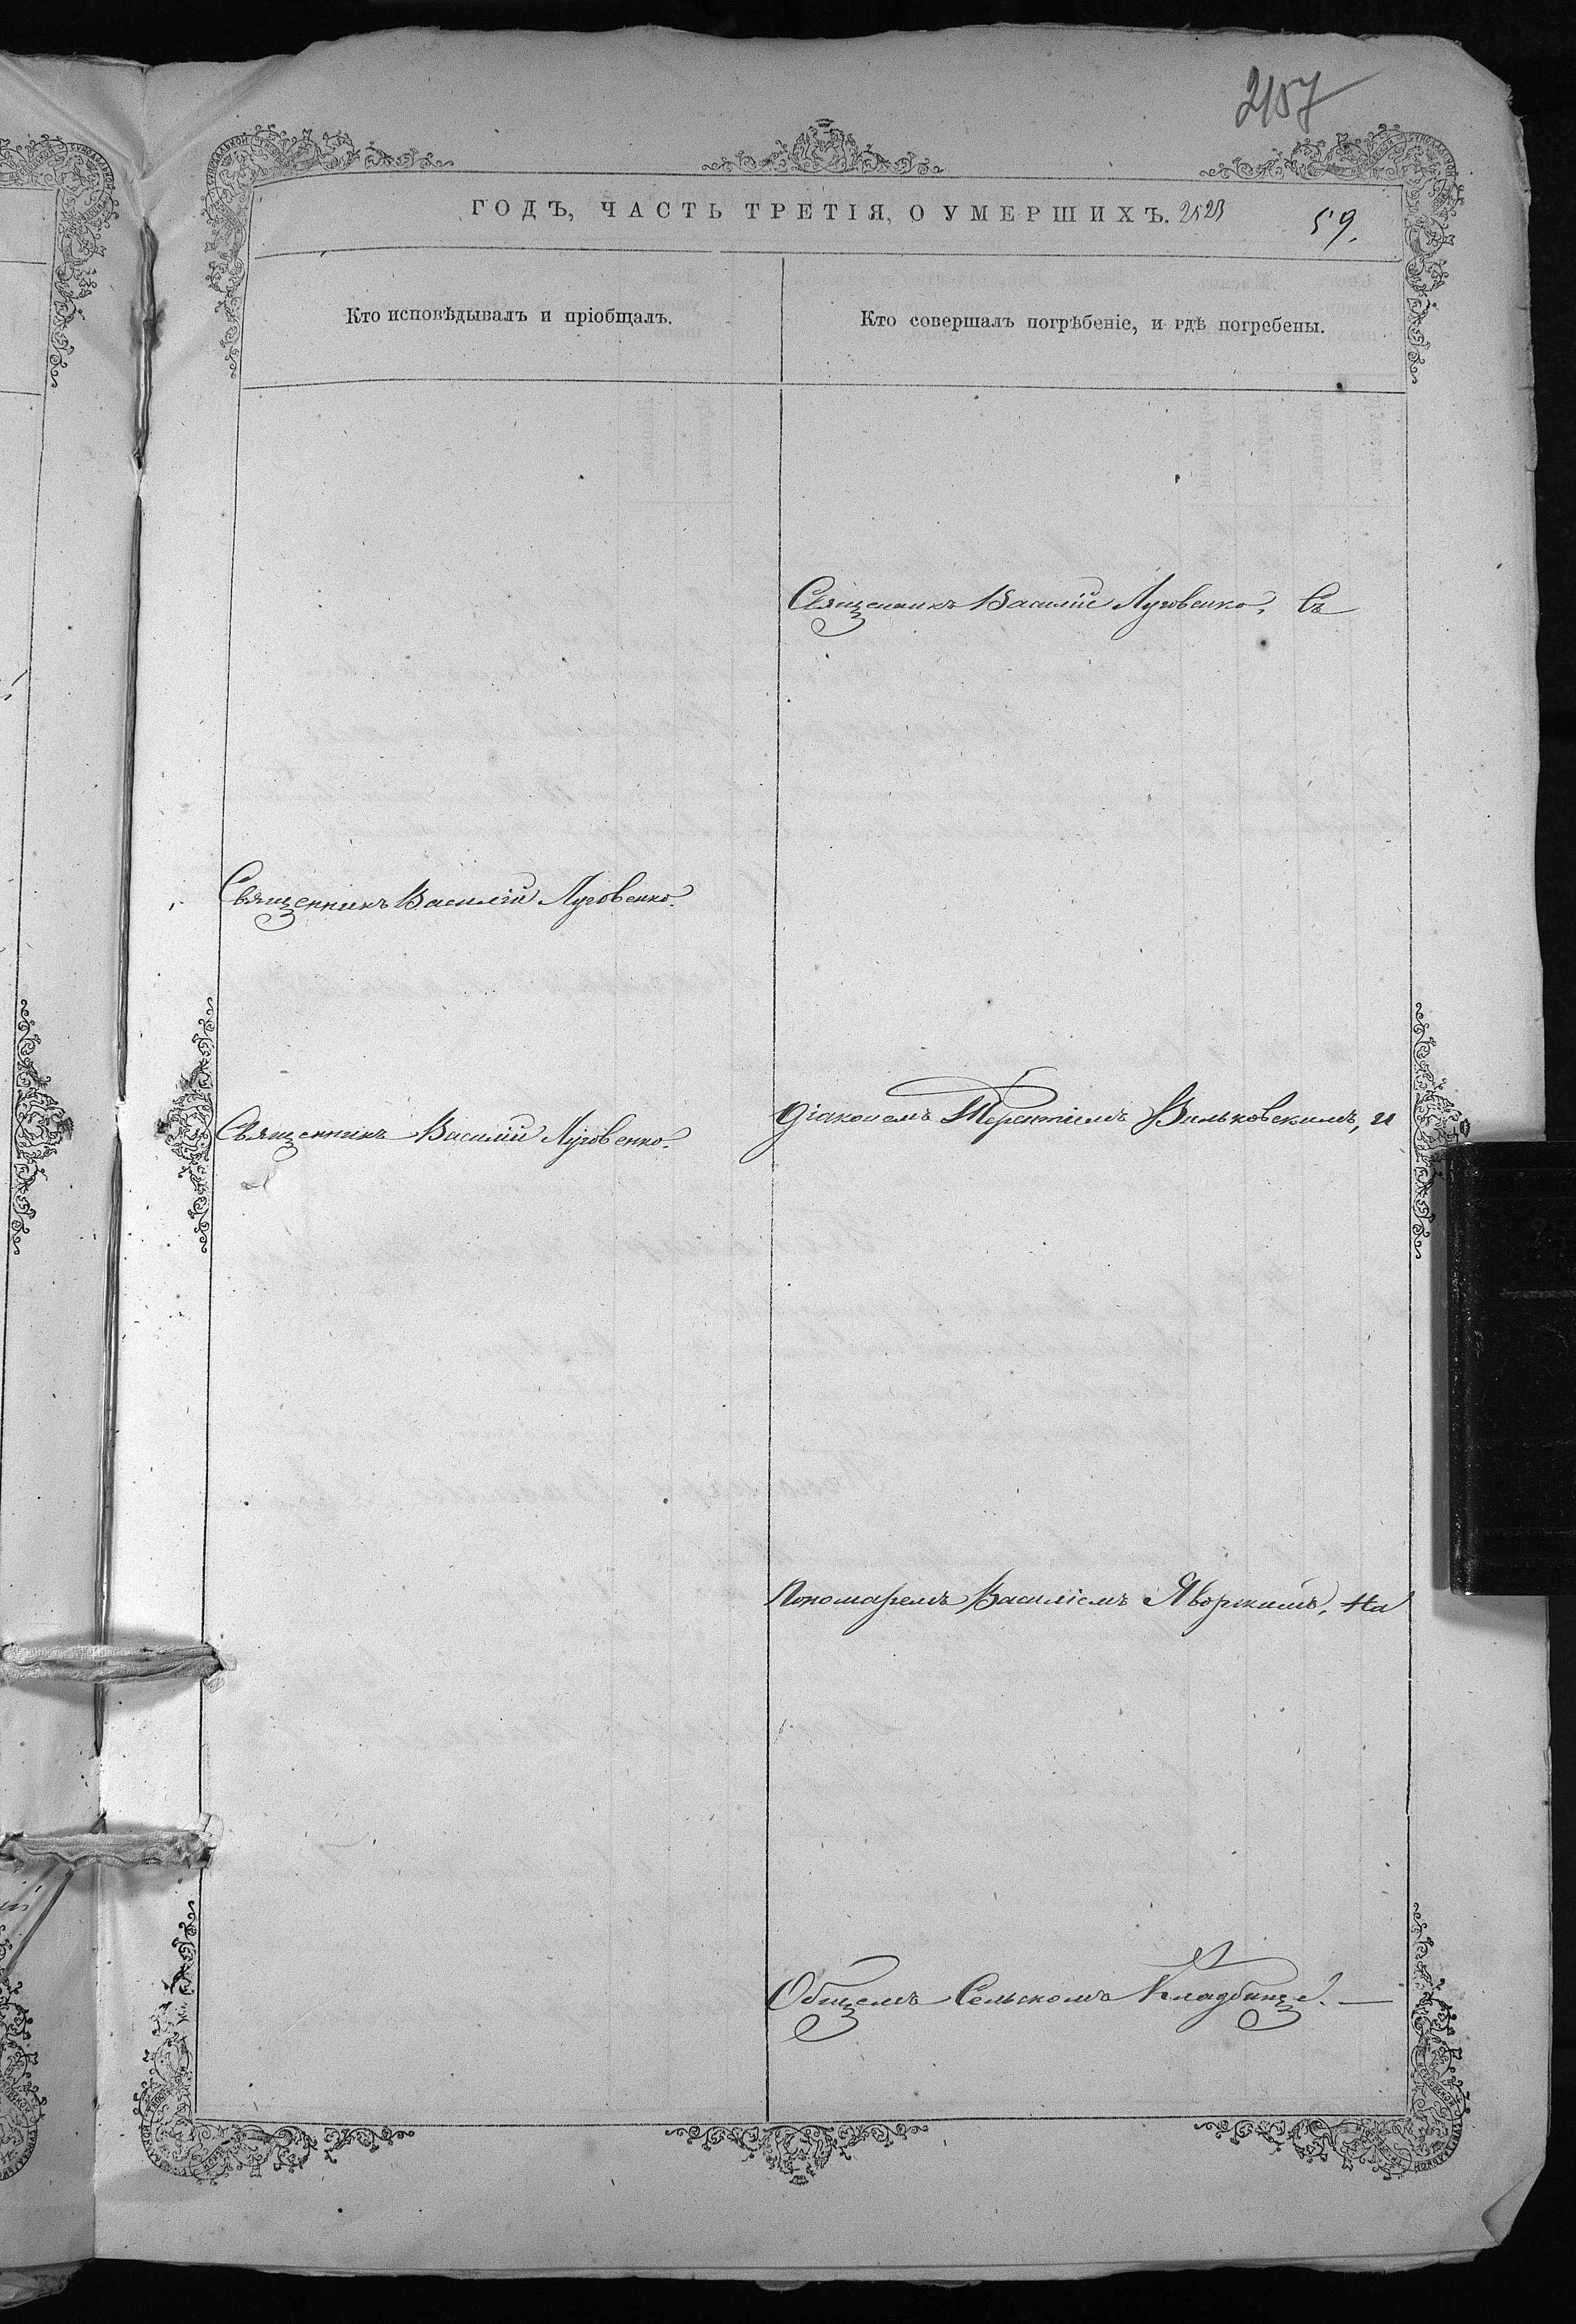 2107
ГОДЪ, ЧАСТЬ ТРЕТІЯ, О УМЕРШИХЪ.
59.
Кто исповѣдывалъ и пріобщалъ.
Кто совершалъ погрѣбеніе, и гдѣ погребены.
Священникъ Василій Луговенко. Съ
Священникъ Василій Луговенко.
Діакономъ Терентіемъ Вильковскимъ, и
Священникъ Василій Луговенко.
Пономаремъ Василіемъ Яворскимъ. На
Общемъ Сельскомъ Кладбище. —